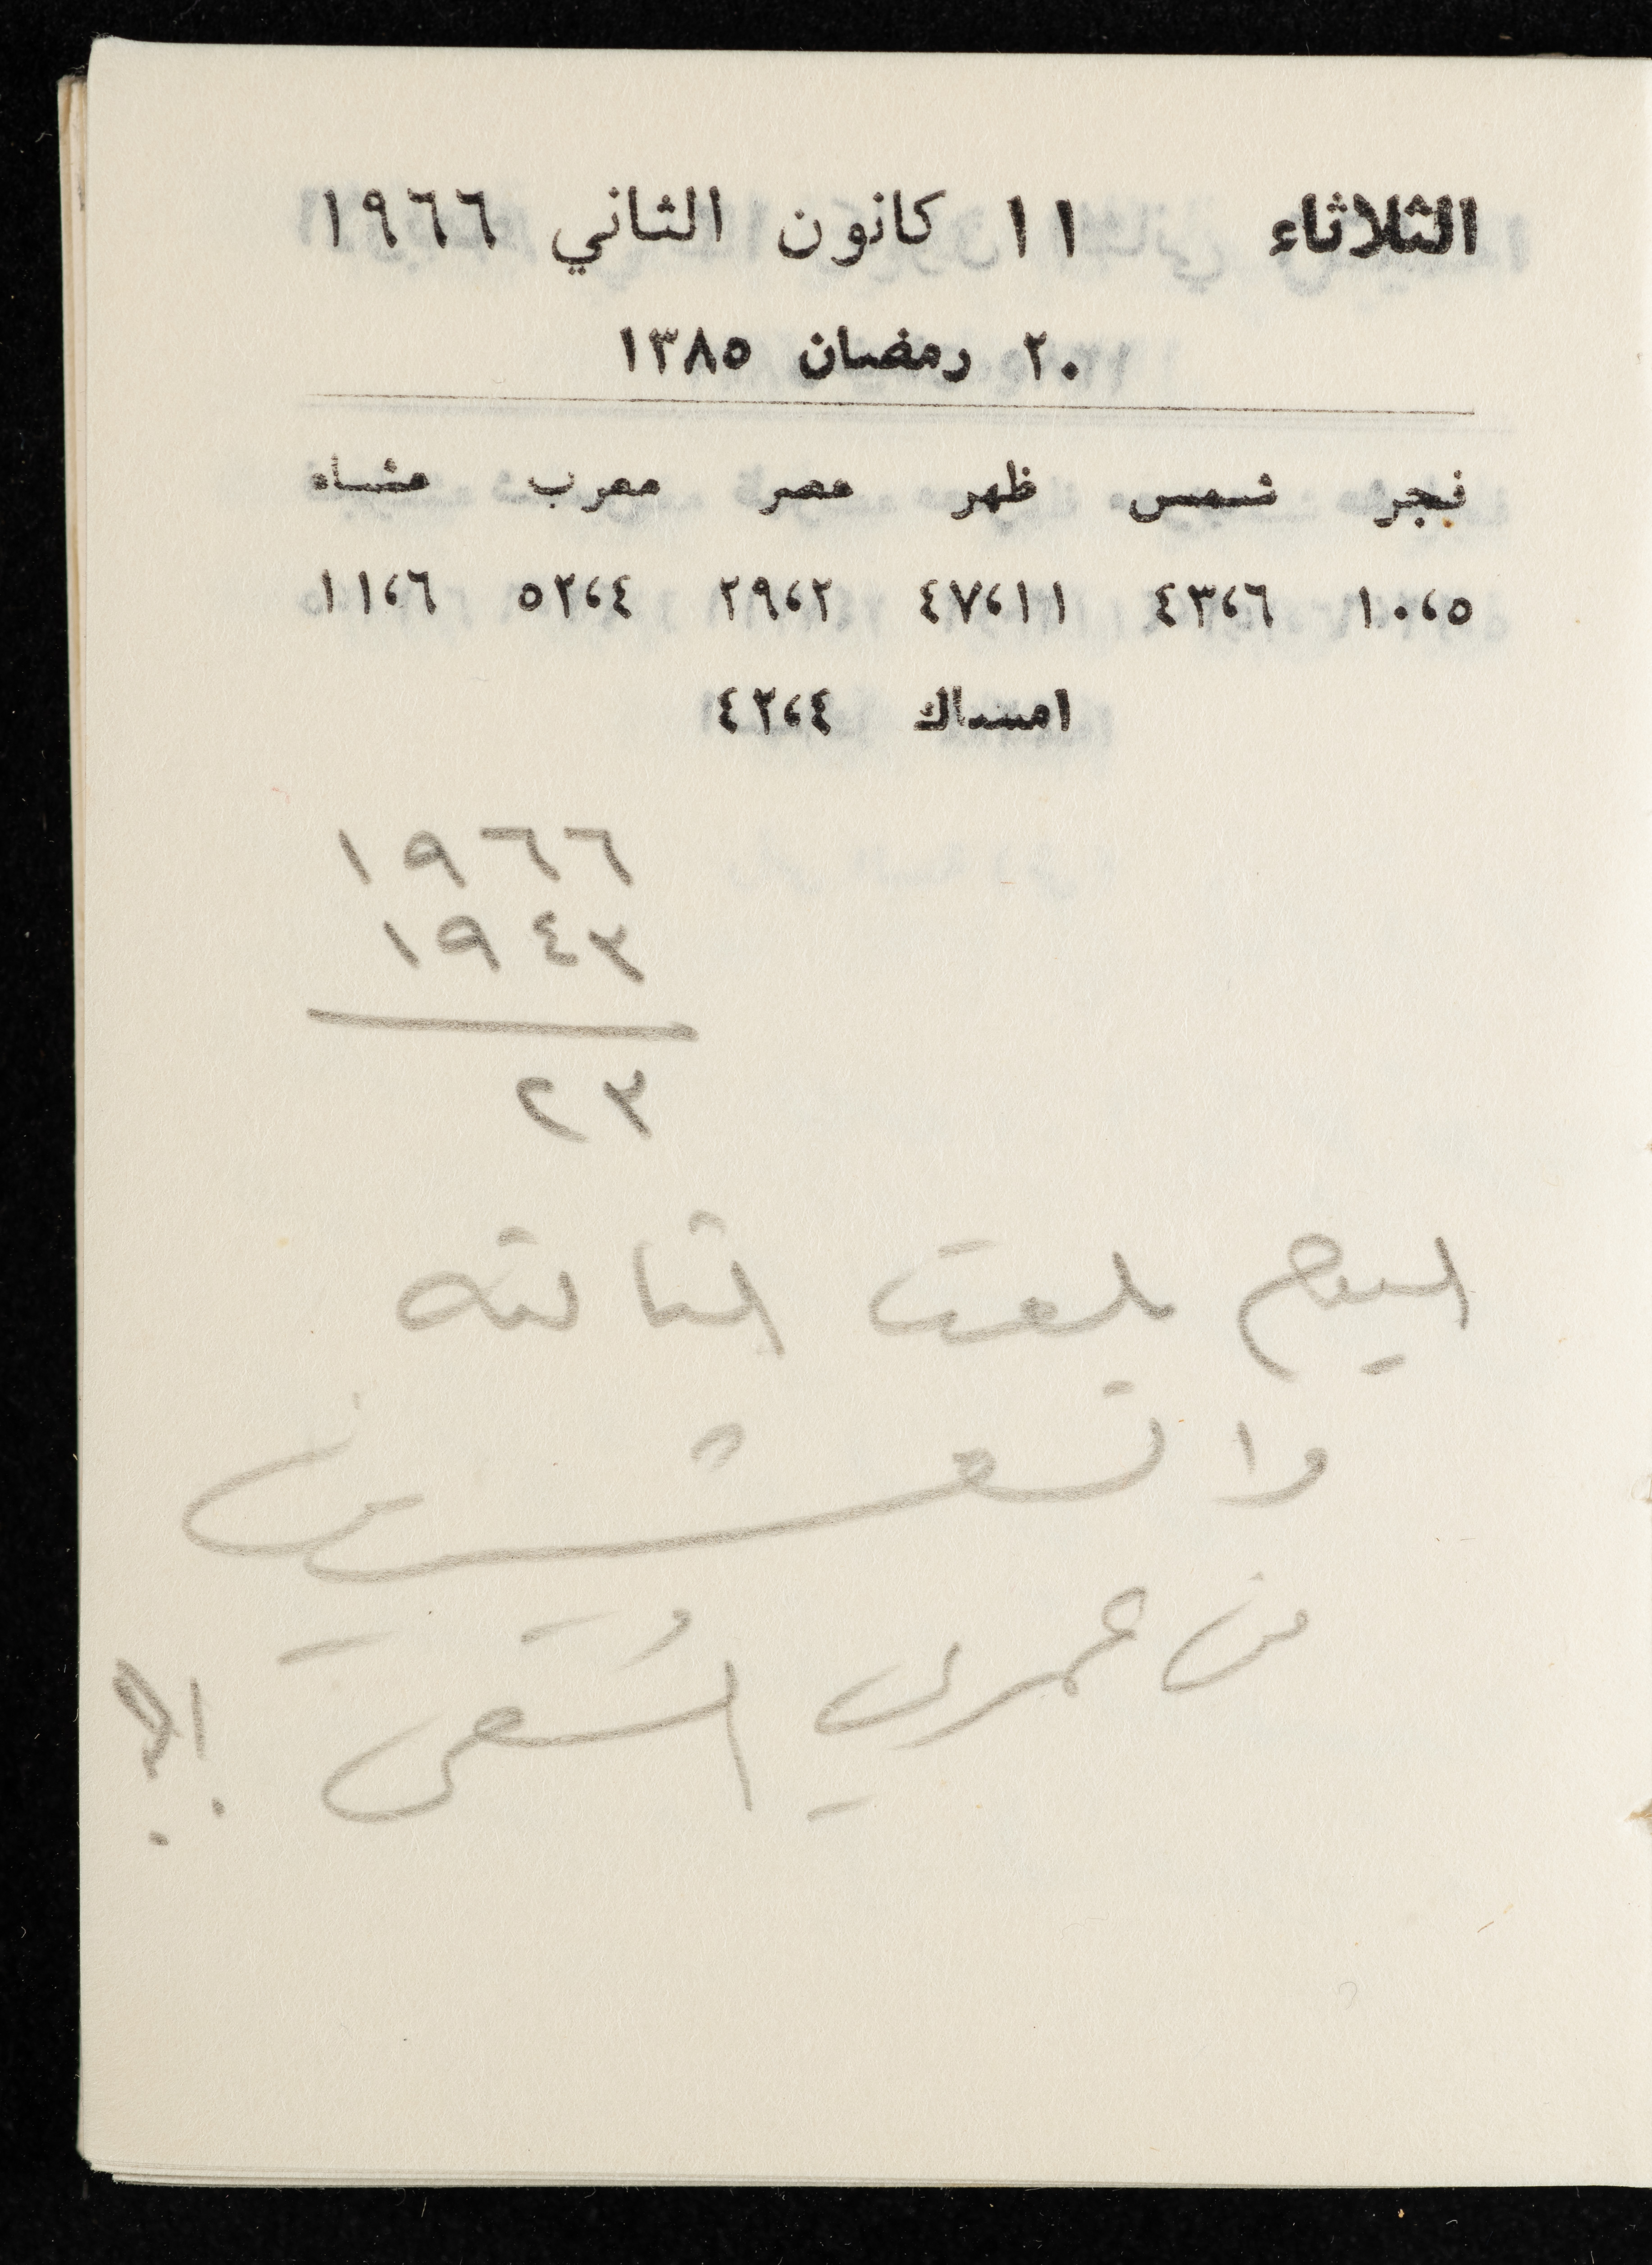 الثلاثاء ١١ كانون الثاني ١٩٦٦
٢٠ رمضان ١٣٨٥
فجر شمس ظهر عصر مغرب عشاء
١٠،٥ ٤٣،٦ ٤٧،١١ ٢٩،٢ ٥٢،٤ ١١،٦
امساك ٤٢،٤
١٩٦٦
١٩٤٣
٢٣
اليوم بلغت الثالثة
والعشرين
من عمري الشقي !؟